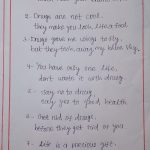 2- Drugs are not cool.
they make you look like a fool.
3- Drugs gave me wings to fly,
but they took away my blue sky.
4- You have only one life,
don't waste it with drug.
5- say no to drug,
say yes to good health
6- Get rid of drugs,
before they get rid of you
7- Life is a precious gift,